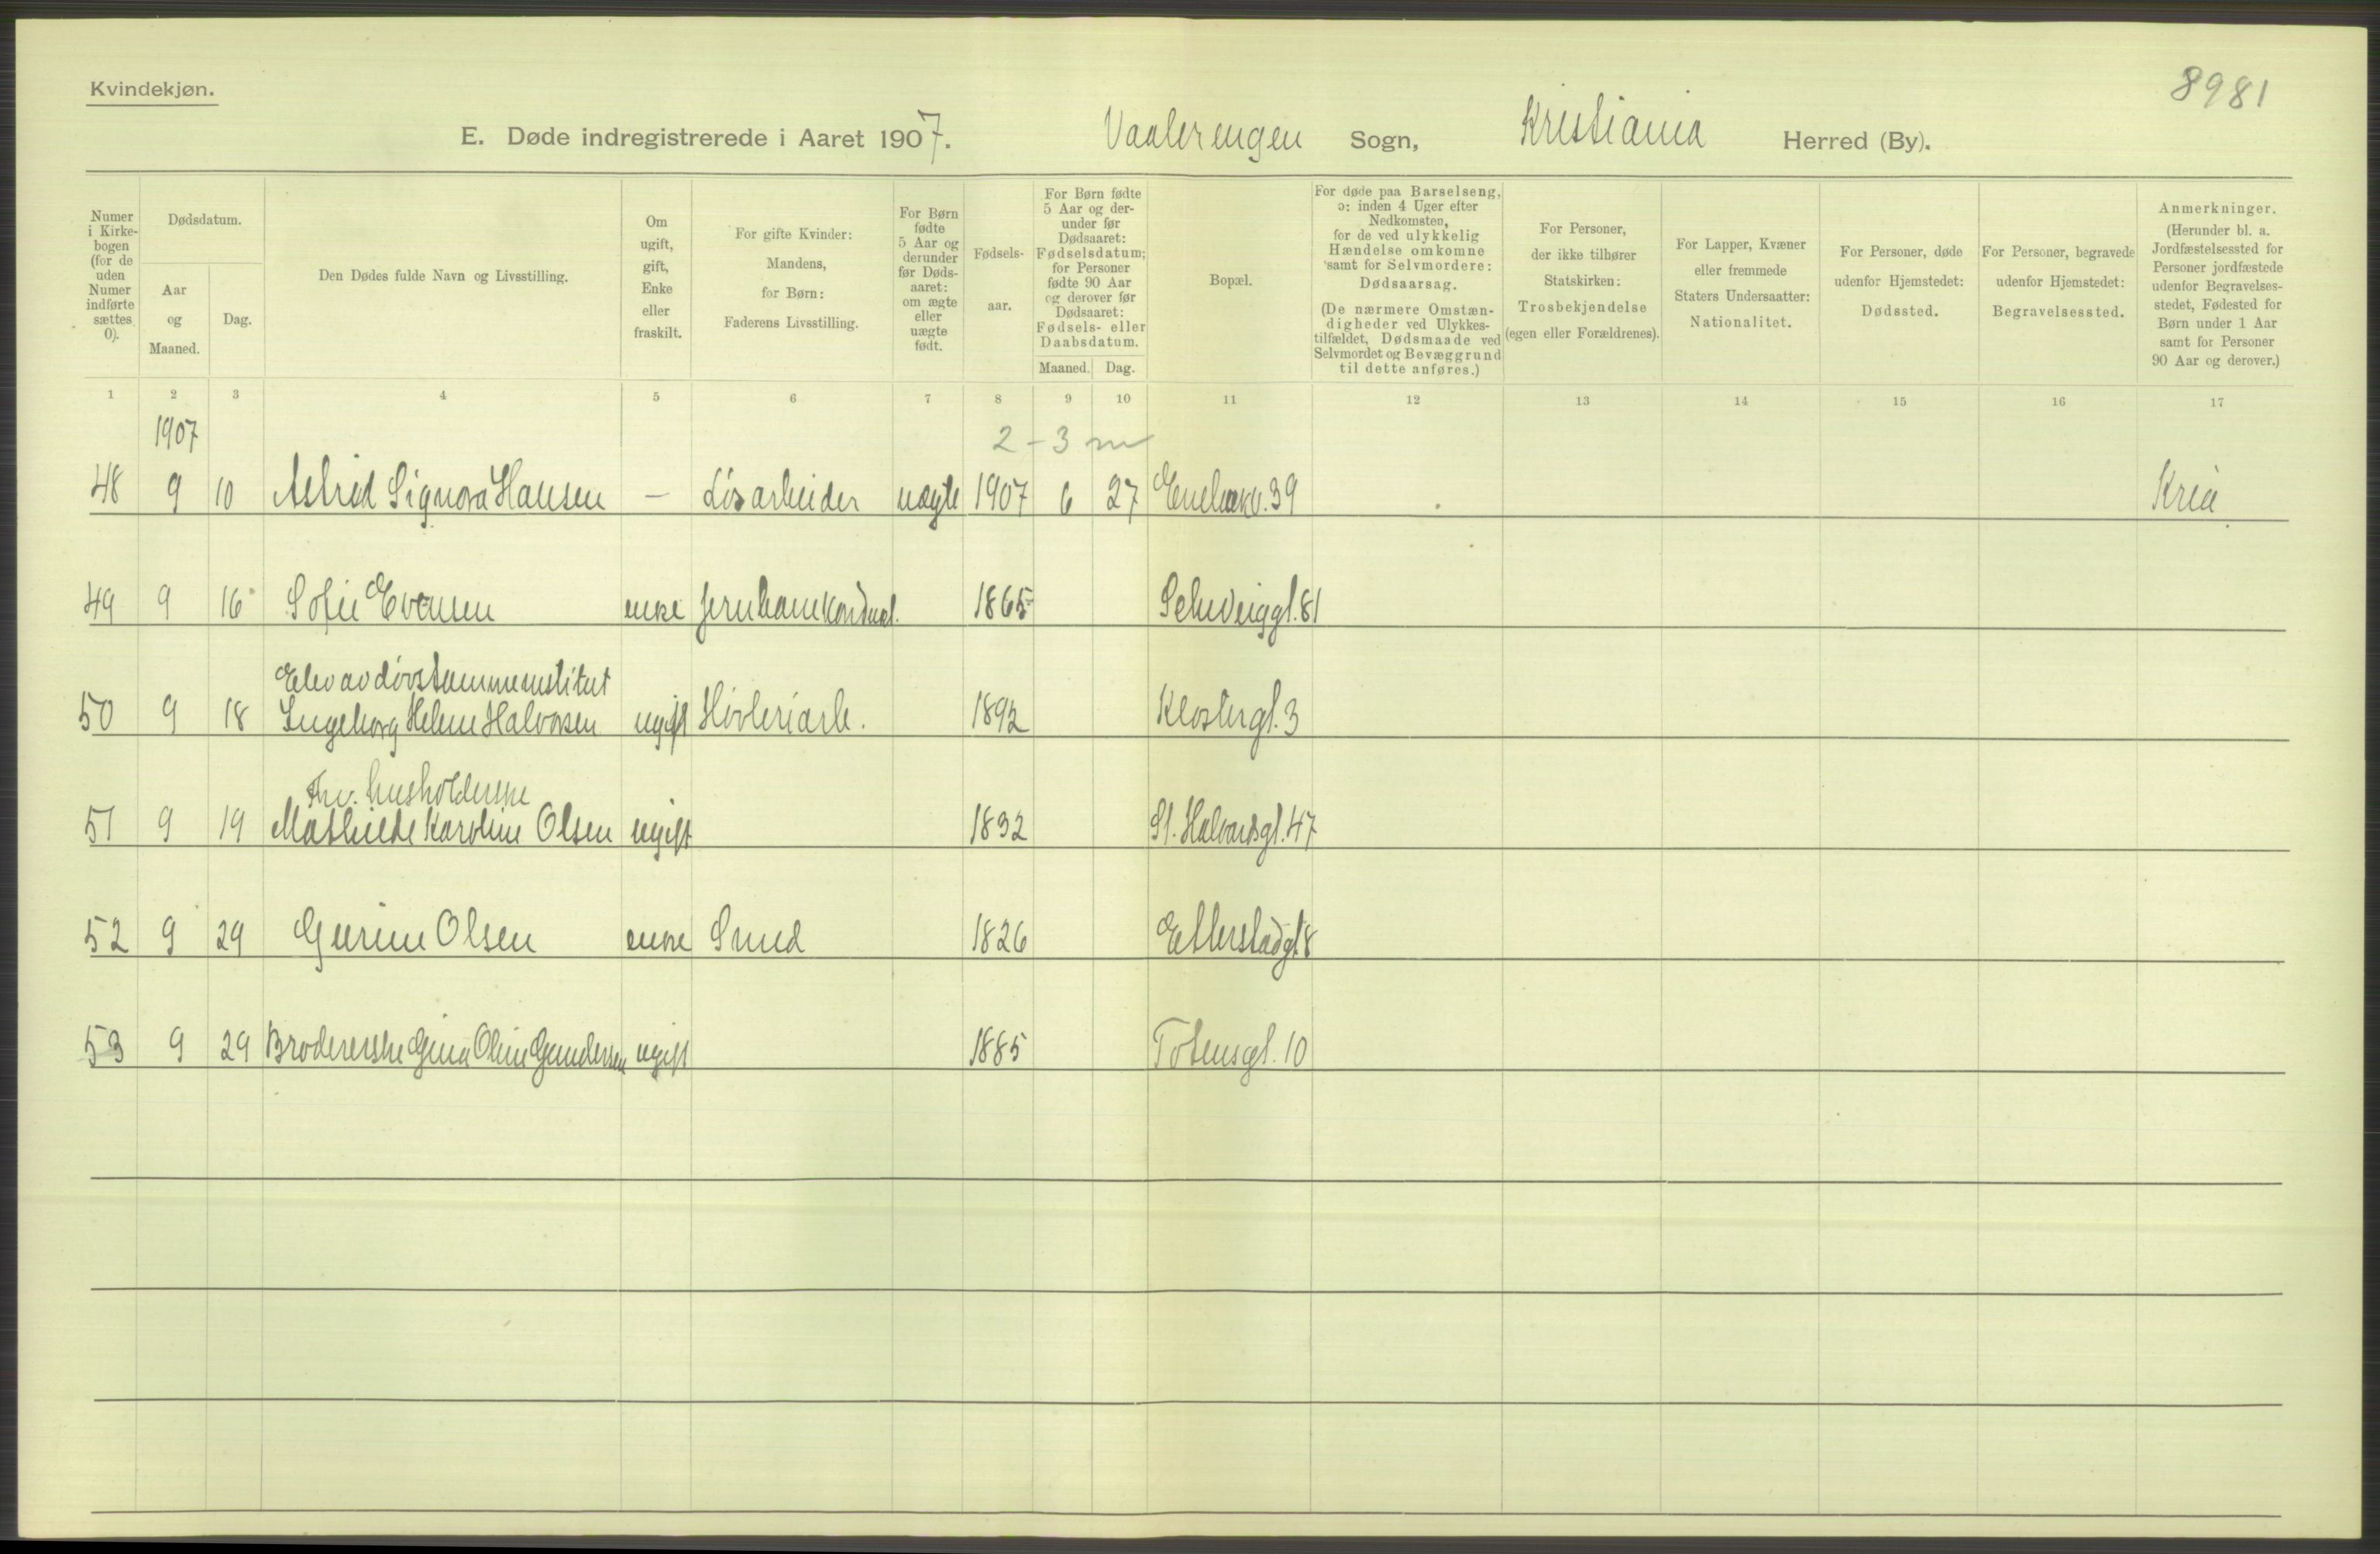 Kvindekjøn.
8981
E. Døde indregistrerede i Aaret 1907. Vaalerengen Sogn, Kristiania Herred (By).
Numer i Kirke- bogen (for de uden Numer indførte sættes 0).
Dødsdatum.
Aar og Maaned.
Dag.
Den Dødes fulde Navn og Livsstilling.
Om ugift, gift, Enke eller fraskilt.
For gifte Kvinder: Mandens, for Børn: Faderens Livsstilling.
For Børn fødte 5 Aar og derunder før Døds- aaret: om ægte eller uægte født.
Fødsels- aar.
For Børn fødte 5 Aar og der- under før Dødsaaret: Fødselsdatum; for Personer fødte 90 Aar og derover før Dødsaaret: Fødsels- eller Daabsdatum.
Maaned. Dag.
Bopæl.
For døde paa Barselseng, ɔ: inden 4 Uger efter Nedkomsten, for de ved ulykkelig Hændelse omkomne samt for Selvmordere: Dødsaarsag. (De nærmere Omstæn- digheder ved Ulykkes- tilfældet, Dødsmaade ved Selvmordet og Bevæggrund til dette anføres.)
For Personer, der ikke tilhører Statskirken: Trosbekjendelse (egen eller Forældrenes).
For Lapper, Kvæner eller fremmede Staters Undersaatter: Nationalitet.
For Personer, døde udenfor Hjemstedet: Dødssted.
For Personer, begravede udenfor Hjemstedet: Begravelsessted.
Anmerkninger. (Herunder bl. a. Jordfæstelsessted for Personer jordfæstede udenfor Begravelses- stedet, Fødested for Børn under 1 Aar samt for Personer 90 Aar og derover.)
1 2 3 4 5 6 7 8 9 10 11 12 13 14 15 16 17
1907 2-3 m
48 9 10 Astrid Signora Hansen - Løsarbeider uægte 1907 6 27 Enebakv. 39 Kria
49 9 16 Sofie Evensen enke Jernbanekonduct. 1865 Schweiggt. 81
Elev av døvstummeinstitut
50 9 18 Ingeborg Helene Halvorsen ugift Høvleriarb. 1892 Klostergt. 3
Fhv. husholderske
51 9 19 Mathilde Karoline Olsen ugift 1832 St. Halvardsgt. 47
52 9 29 Gurine Olsen enke Smed 1826 Etterstadgt 8
53 9 29 Brodererske Gina Oline Gundersen ugift 1885 Totensgt. 10